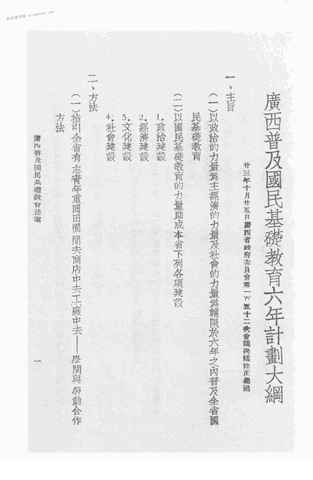 廣西普及國民基礎教育六年計劃大綱
廿三年十月廿五日廣西省政府委員會第一百五十二次會議決議修正通過
一、主旨
(一)以政治的力量為主經濟的力量及社會的力量為輔限於六年之內普及全省國
民基礎教育
(二)以國民基礎教育的力量助成本省下列各項建設
1.政治建設
2.經濟建設
3.文化建設
4.社會建設
二、方法
(一)指引全省有志青年重回田園間去商店中去工廠中去——學問與勞動合作
方法
廣西普及國民基礎教育法案
一